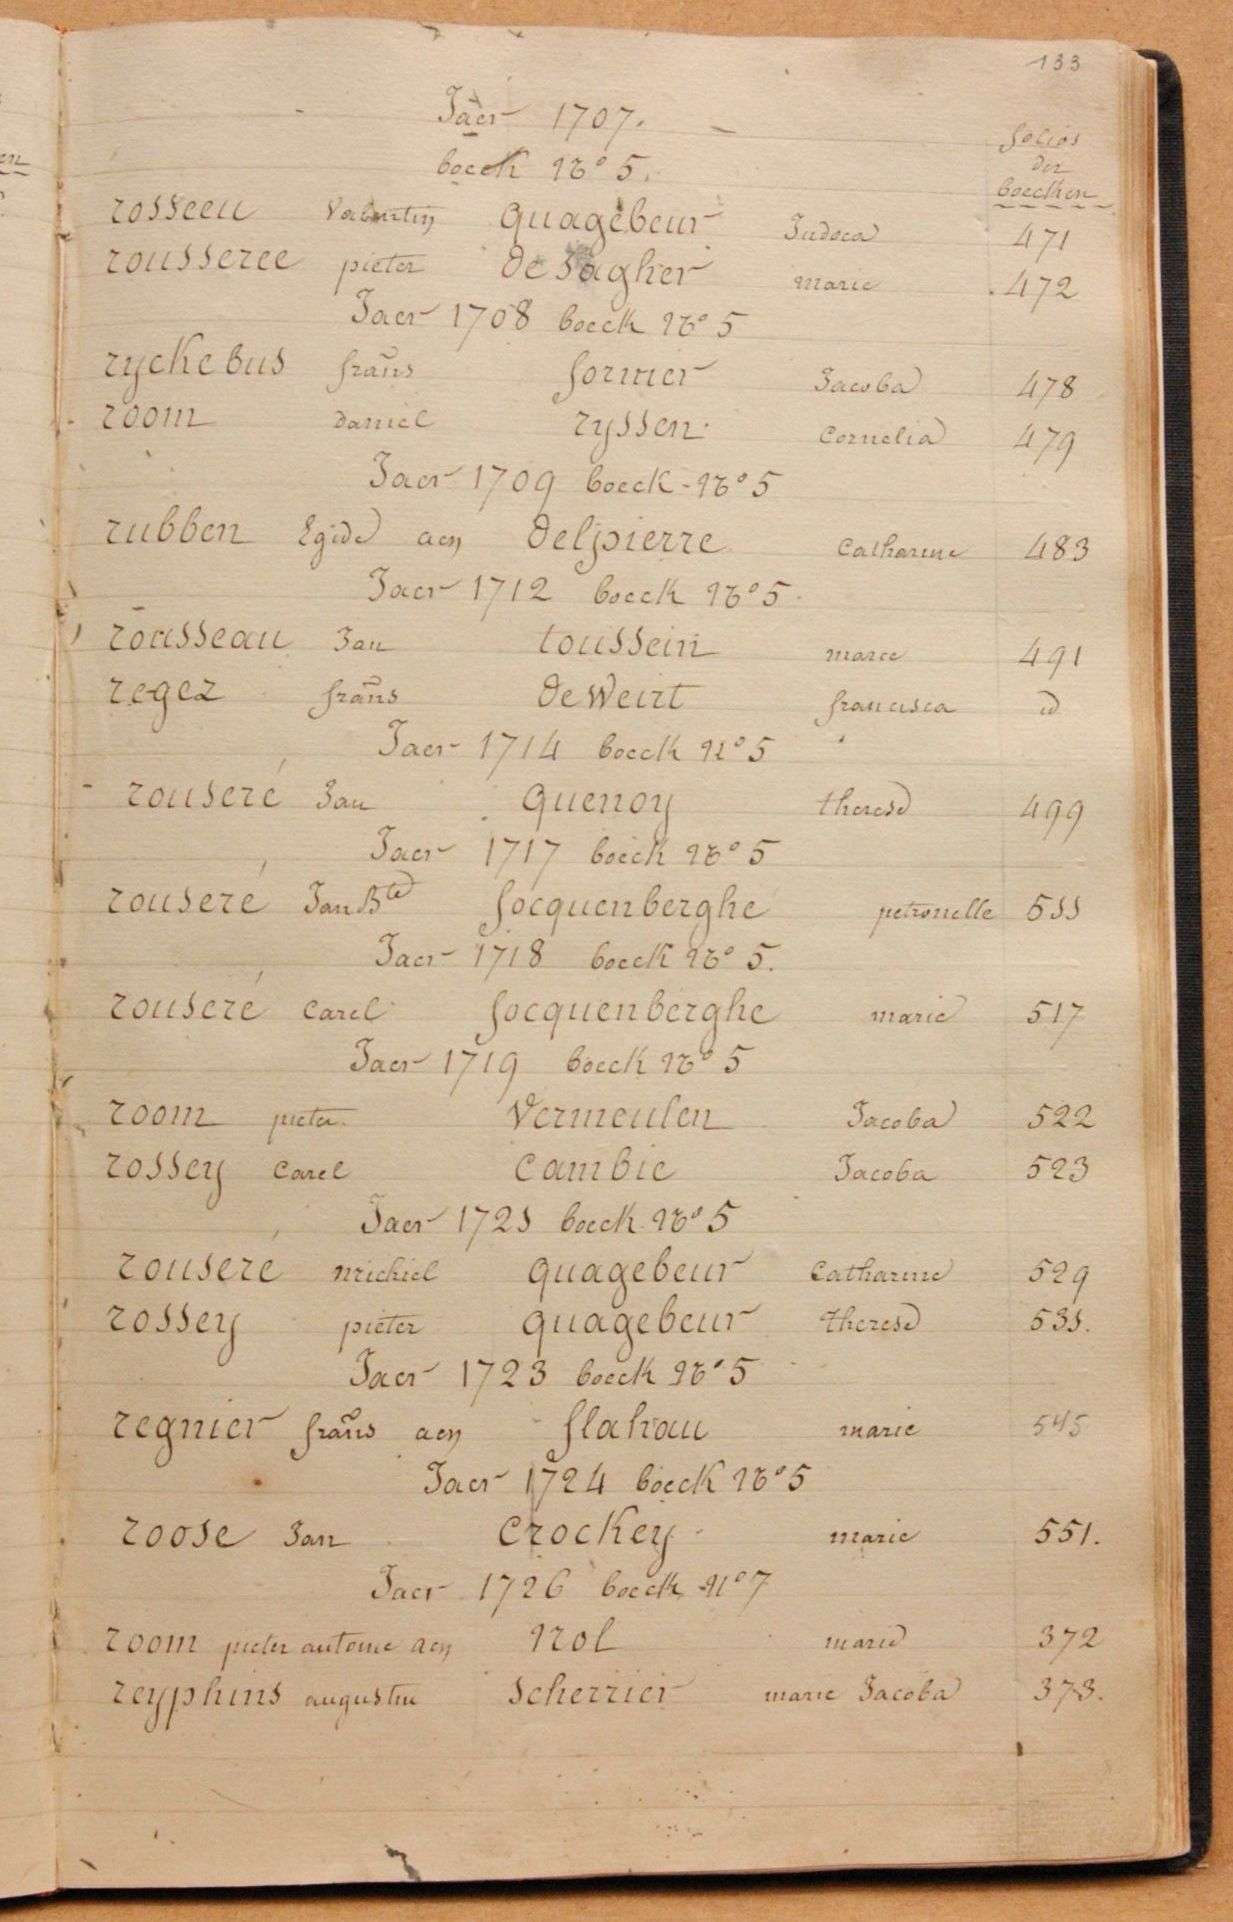 133
Jaer 1707.
folios
der
boecken
boeck No 5.
rosseeu Valentin quagebeur Judoca 471
rousseree pieter de Sagher marie 472
Jaer 1708 boeck No 5
ryckebus frans formier Jacoba 478
room daniel ryssen Cornelia 479
Jaer 1709 boeck No 5
rubben Egide aen Delpierre Catharine 483
Jaer 1712 boeck No 5
rousseau Jan toussein marie 491
regez frans de Weirt francisca id
Jaer 1714 boeck No 5
rouseré Jan quenoy therese 499
Jaer 1717 boeck No 5
rouseré Jan Bte focquenberghe petronelle 511
Jaer 1718 boeck No 5.
rouseré Carel focquenberghe marie 517
Jaer 1719 boeck No 5
room pieter Vermeulen Jacoba 522
rossey Carel Cambie Jacoba 523
Jaer 1721 boeck No 5
rouseré michiel quagebeur Catharine 529
rossey pieter quagebeur therese 531.
Jaer 1723 boeck No 5
regnier frans aen flahau marie 545
Jaer 1724 boeck No 5
roose Jan Crockey marie 551.
Jaer 1726 boeck No 7
room pieter antoine aen Nol marie 372
reyphins augustin Scherrier marie Jacoba 373.